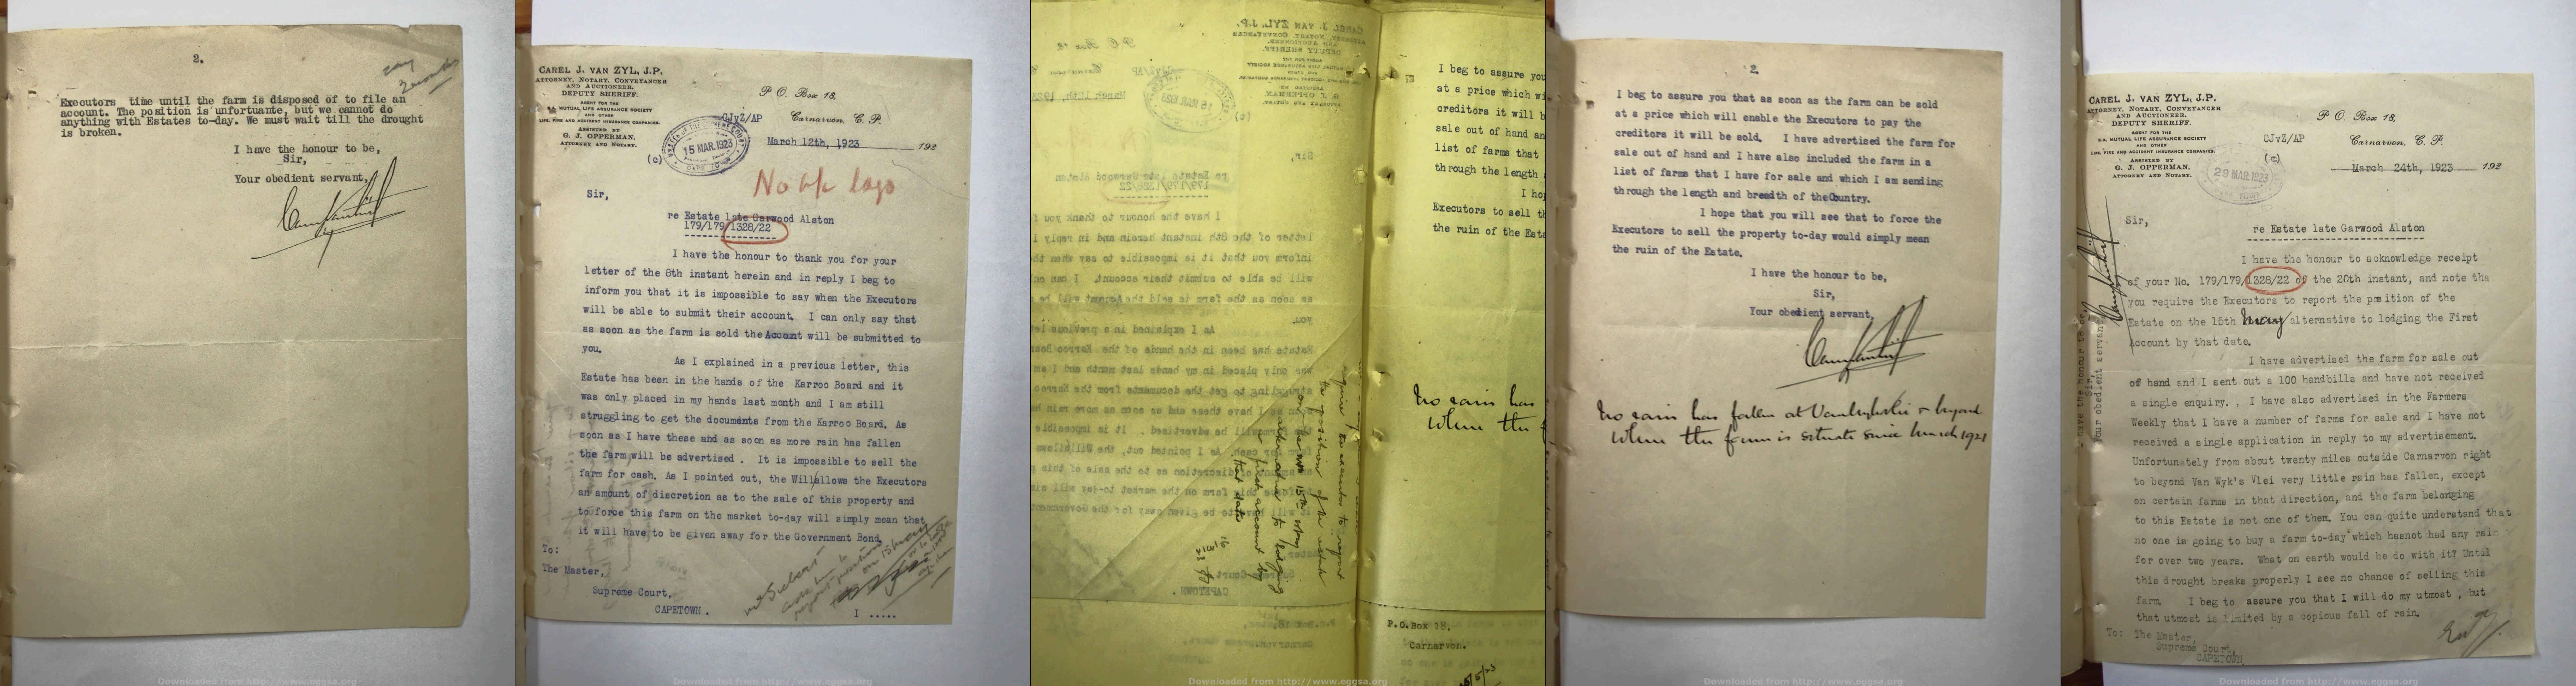 2.
Executors time until the farm is disposed of to file an
account. The position is unfortuante, but we cannot do
anything with Estates to-day. We must wait till the drought
is broken.
I have the honour to be,
Sir,
Your obedient servant,
Downloaded from http://www.eggsa.org
CAREL J. VAN ZYL, J.P.
ATTORNEY, NOTARY, CONVEYANCER
AND AUCTIONEER.
DEPUTY SHERIFF.
AGENT FOR THE
S.A. MUTUAL LIFE ASSURANCE SOCIETY
AND OTHER
LIFE, FIRE AND ACCIDENT INSURANCE COMPANIES.
ASSISTED BY
G. J. OPPERMAN,
ATTORNEY AND NOTARY.
P. O. Box 18,
CJvZ/AP
Carnarvon, C. P.
15 MAR. 1923
March 12th, 1923 192
(c)
Sir,
re Estate late Garwood Alston
179/179/1328/22
I have the honour to thank you for your
letter of the 8th instant herein and in reply I beg to
inform you that it is impossible to say when the Executors
will be able to submit their account. I can only say that
as soon as the farm is sold the Account will be submitted to
you.
As I explained in a previous letter, this
Estate has been in the hands of the Karroo Board and it
was only placed in my hands last month and I am still
struggling to get the documents from the Karroo Board. As
soon as I have these and as soon as more rain has fallen
the farm will be advertised . It is impossible to sell the
farm for cash. As I pointed out, the Will allows the Executors
an amount of discretion as to the sale of this property and
to force this farm on the market to-day will simply mean that
it will have to be given away for the Government Bond.
To:
The Master,
Supreme Court,
CAPETOWN.
I .....
Downloaded from http://www.eggsa.org
I beg to assure you
at a price which wi
creditors it will b
sale out of hand an
list of farms that
through the length
I hop
Executors to sell th
the ruin of the Esta
No rain has
When the
require the executor to report
the position of the estate
on the 15th May
alternative to lodging
a first account by
that date
P.O.Box 18,
Carnarvon.
Downloaded from http://www.eggsa.org
2.
I beg to assure you that as soon as the farm can be sold
at a price which will enable the Executors to pay the
creditors it will be sold. I have advertised the farm for
sale out of hand and I have also included the farm in a
list of farms that I have for sale and which I am sending
through the length and breadth of the Country.
I hope that you will see that to force the
Executors to sell the property to-day would simply mean
the ruin of the Estate.
I have the honour to be,
Sir,
Your obedient servant,
No rain has fallen at Vanwyksvlei & beyond
When the farm is situate since March 1921
Downloaded from http://www.eggsa.org
CAREL J. VAN ZYL, J.P.
ATTORNEY, NOTARY, CONVEYANCER
AND AUCTIONEER,
DEPUTY SHERIFF.
AGENT FOR THE
S.A. MUTUAL LIFE ASSURANCE SOCIETY
AND OTHER
LIFE, FIRE AND ACCIDENT INSURANCE COMPANIES.
ASSISTED BY
G. J. OPPERMAN,
ATTORNEY AND NOTARY.
P. O. Box 18,
CJvZ/AP
(c)
Carnarvon, C. P.
29 MAR. 1923
March 24th, 1923 192
Sir,
re Estate late Garwood Alston
I have the honour to acknowledge receipt
of your No. 179/179/1328/22 of the 20th instant, and note tha
you require the Executors to report the position of the
Estate on the 15th May alternative to lodging the First
Account by that date.
I have advertised the farm for sale out
of hand and I sent out a 100 handbills and have not received
a single enquiry. . I have also advertised in the Farmers
Weekly that I have a number of farms for sale and I have not
received a single application in reply to my advertisement.
Unfortunately from about twenty miles outside Carnarvon right
to beyond Van Wyk's Vlei very little rain has fallen, except
on certain farms in that direction, and the farm belonging
to this Estate is not one of them. You can quite understand that
no one is going to buy a farm to-day which hasnot had any rain
for over two years. What on earth would he do with it? Until
this drought breaks properly I see no chance of selling this
farm. I beg to assure you that I will do my utmost , but
that utmost is limited by a copious fall of rain.
To: The Master,
Supreme Court,
CAPETOWN
I have the honour to be,
Sir,
Your obedient servant
Downloaded from http://www.eggsa.org